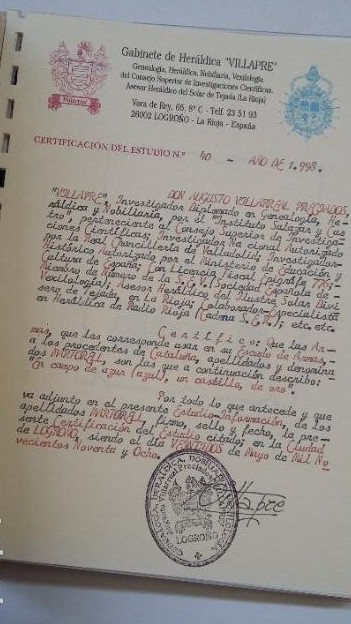 Gabinete de Heráldica "VILLAPRE"
Genealogía, Heráldica, Nobiliaria, Vexilología
del Consejo Superior de Investigaciones Científicas.
Asesor Heráldico del Solar de Tejada (La Rioja)
Vara de Rey, 65, 8º C - Telf. 23 51 93
26002 LOGROÑO - La Rioja - España
CERTIFICACIÓN DEL ESTUDIO N.º 40 - AÑO DE 1.998.
DON AUGUSTO VILLARREAL PRECIADOS,
"VILLAPRE", Investigador Diplomado en Genealogía, He-
ráldica y Nobiliaria, por el "Instituto Salazar y Cas-
tro", perteneciente al Consejo Superior de Investiga-
ciones Científicas; Investigador Nacional Autorizado
por la Real Chancillería de Valladolid; Investigador
Histórico Autorizado por el Ministerio de Educación y
Cultura de España; Con Licencia Fiscal Epígrafe 776;
Miembro de Número de la S.E.V. (Sociedad Española de
Vexilología); Asesor Heráldico del Ilustre Solar Divi
sero de Tejada, en La Rioja; Colaborador-Especialista
en Heráldica de Radio Rioja (Cadena S.E.R.); etc, etc
Certifico: Que las Ar-
mas, que les corresponde usar en su Escudo de Armas,
a los procedentes de Cataluña, apellidados y denomina
dos MARTORAL, son las que a continuación describo:
"En campo de azur (azul), un castillo, de oro".
Por todo lo que antecede y que
va adjunto en el presente Estudio-Información, de los
apellidados MARTORAL, firmo, sello y fecho, la pre-
sente Certificación del Estudio citado; en la Ciudad
de LOGROÑO, siendo el día de Mayo de Mil No
vecientos Noventa y Ocho.
LOGROÑO